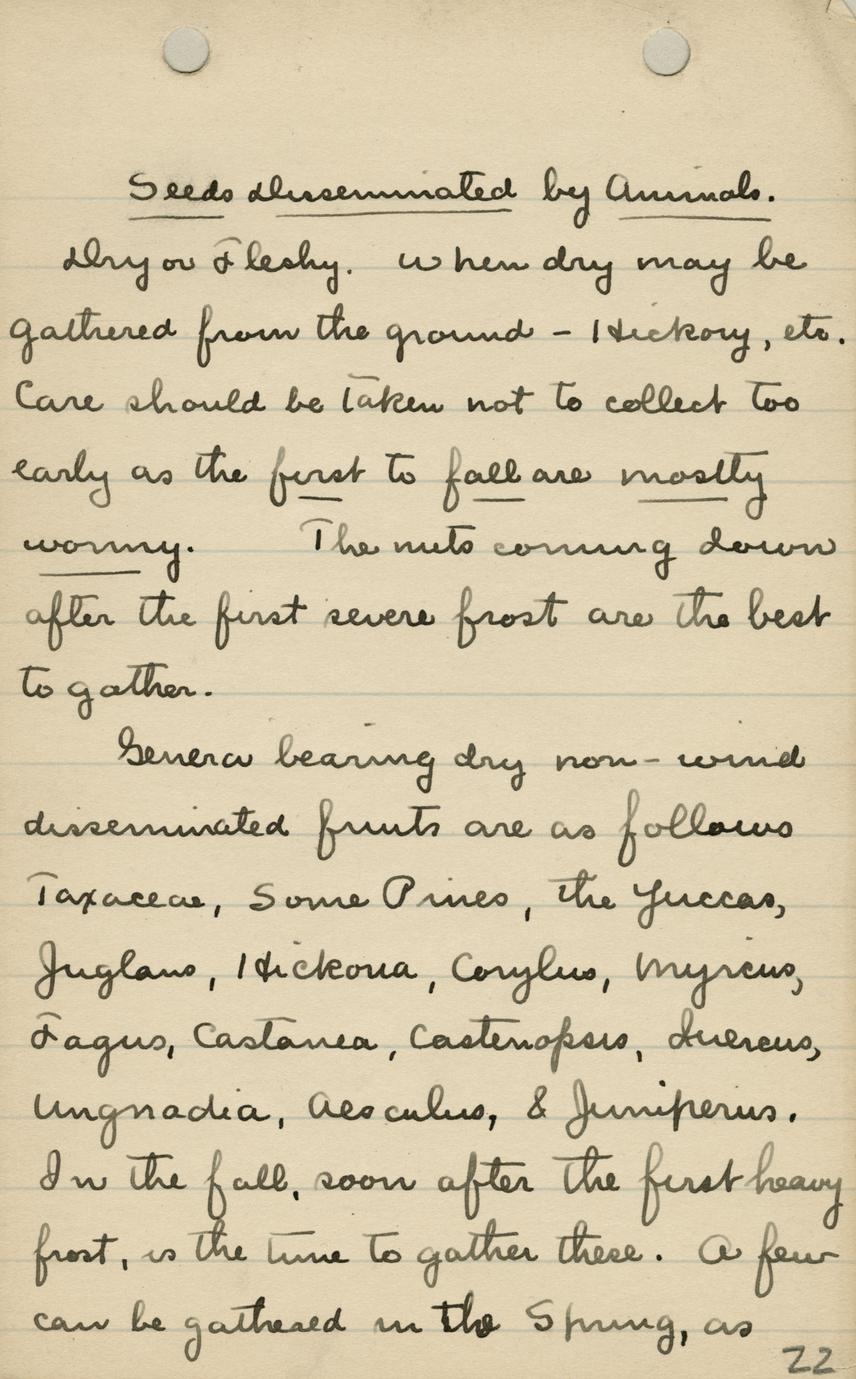 Seeds Disseminated by Animals.
Dry or Fleshy. When dry may be
gathered from the ground - Hickory, etc.
Care should be taken not to collect too
early as the first to fall are mostly
wormy. The nuts coming down
after the first severe frost are the best
to gather.
Genera bearing dry non-wind
disseminated fruits are as follows
Taxaceae, Some Pines, the Yuccas,
Juglans, Hickoria, Corylus, Myricus,
Fagus, Castanea, Castenopsis, Quercus,
Ungnadia, Aesculus, & Juniperus.
In the fall, soon after the first heavy
frost, is the time to gather these. A few
can be gathered in the Spring, as
22